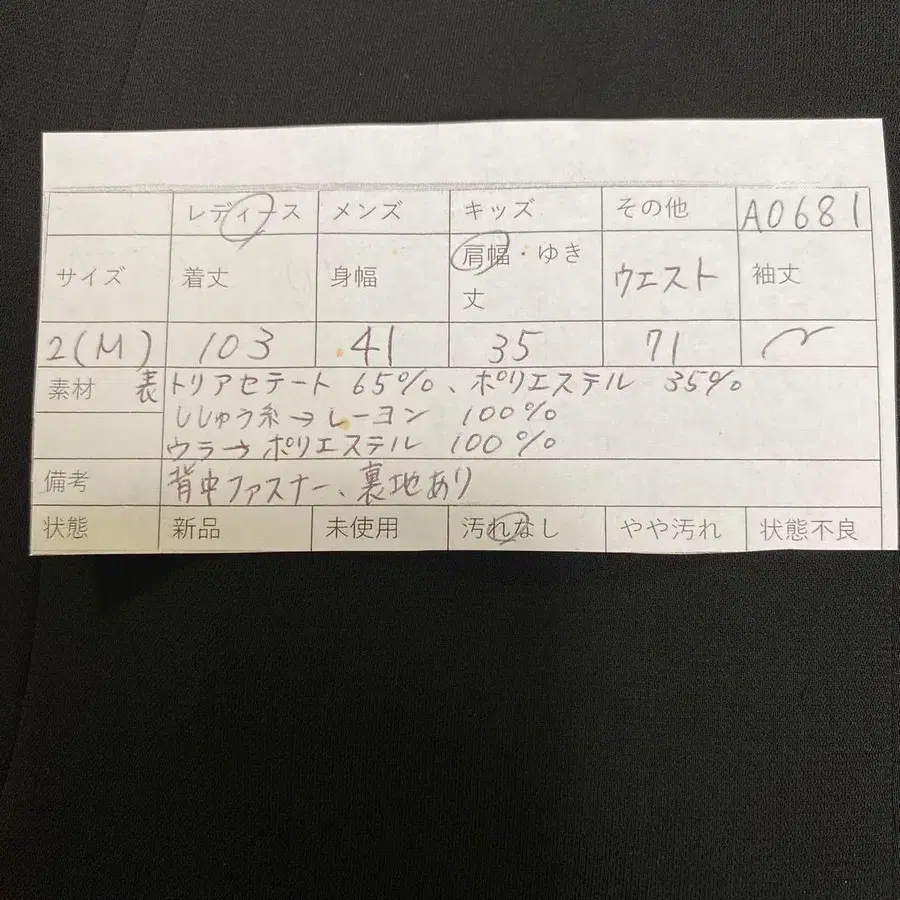 レディース メンズ キッズ その他 A0681
サイズ 着丈 身幅 肩幅・ゆき丈 ウエスト 袖丈
2(M) 103 41 35 71
素材 表 トリアセテート 65%、ポリエステル 35%
ししゅう糸→レーヨン 100%
ウラ→ポリエステル 100%
備考 背中ファスナー、裏地あり
状態 新品 未使用 汚れなし やや汚れ 状態不良